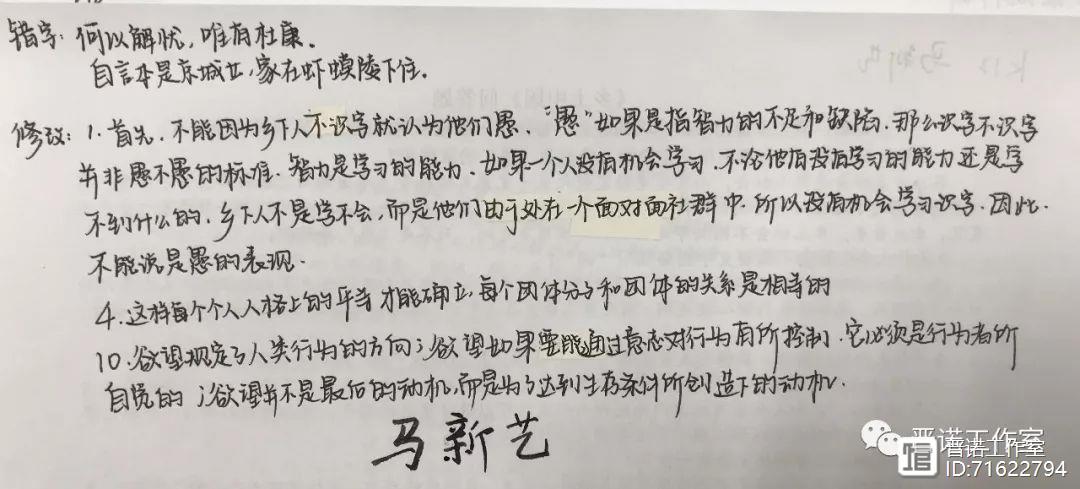 错字：何以解忧，唯有杜康。
自言本是京城女，家在虾蟆陵下住。
修改：1.首先，不能因为乡下人不识字就认为他们愚，“愚”如果是指智力的不足和缺陷，那么识字不识字
并非愚不愚的标准。智力是学习的能力，如果一个人没有机会学习，不论他有没有学习的能力还是学
不到什么的。乡下人不是学不会，而是他们由于处在一个面对面社群中，所以没有机会学习识字，因此，
不能说是愚的表现。
4.这样每个个人人格上的平等才能确立，每个团体分子和团体的关系是相等的
10.欲望规定了人类行为的方向；欲望如果要能通过意志对行为有所控制，它必须是行为者所
自觉的；欲望并不是最后的动机，而是为了达到生存条件所创造下的动机。
马新艺
晋诺工作室
晋诺工作室
ID:71622794